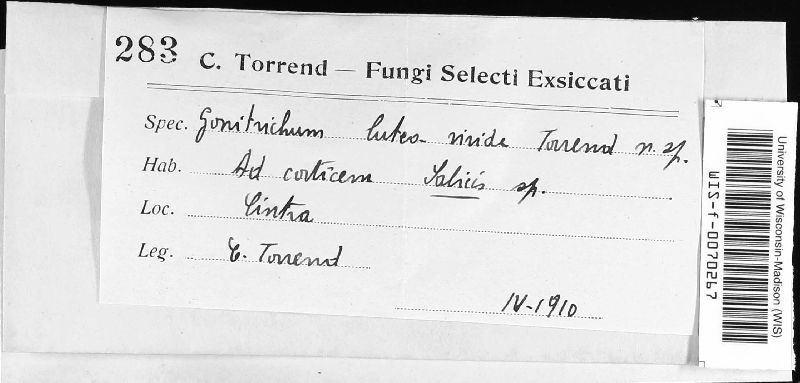 283 C. Torrend — Fungi Selecti Exsiccati
Spec. Gonitrichum luteo-viride Torrend n. sp.
Hab. Ad corticem Salicis sp.
Loc. Cintra
Leg. C. Torrend
IV-1910
University of Wisconsin-Madison (WIS)
WIS-f-0070267